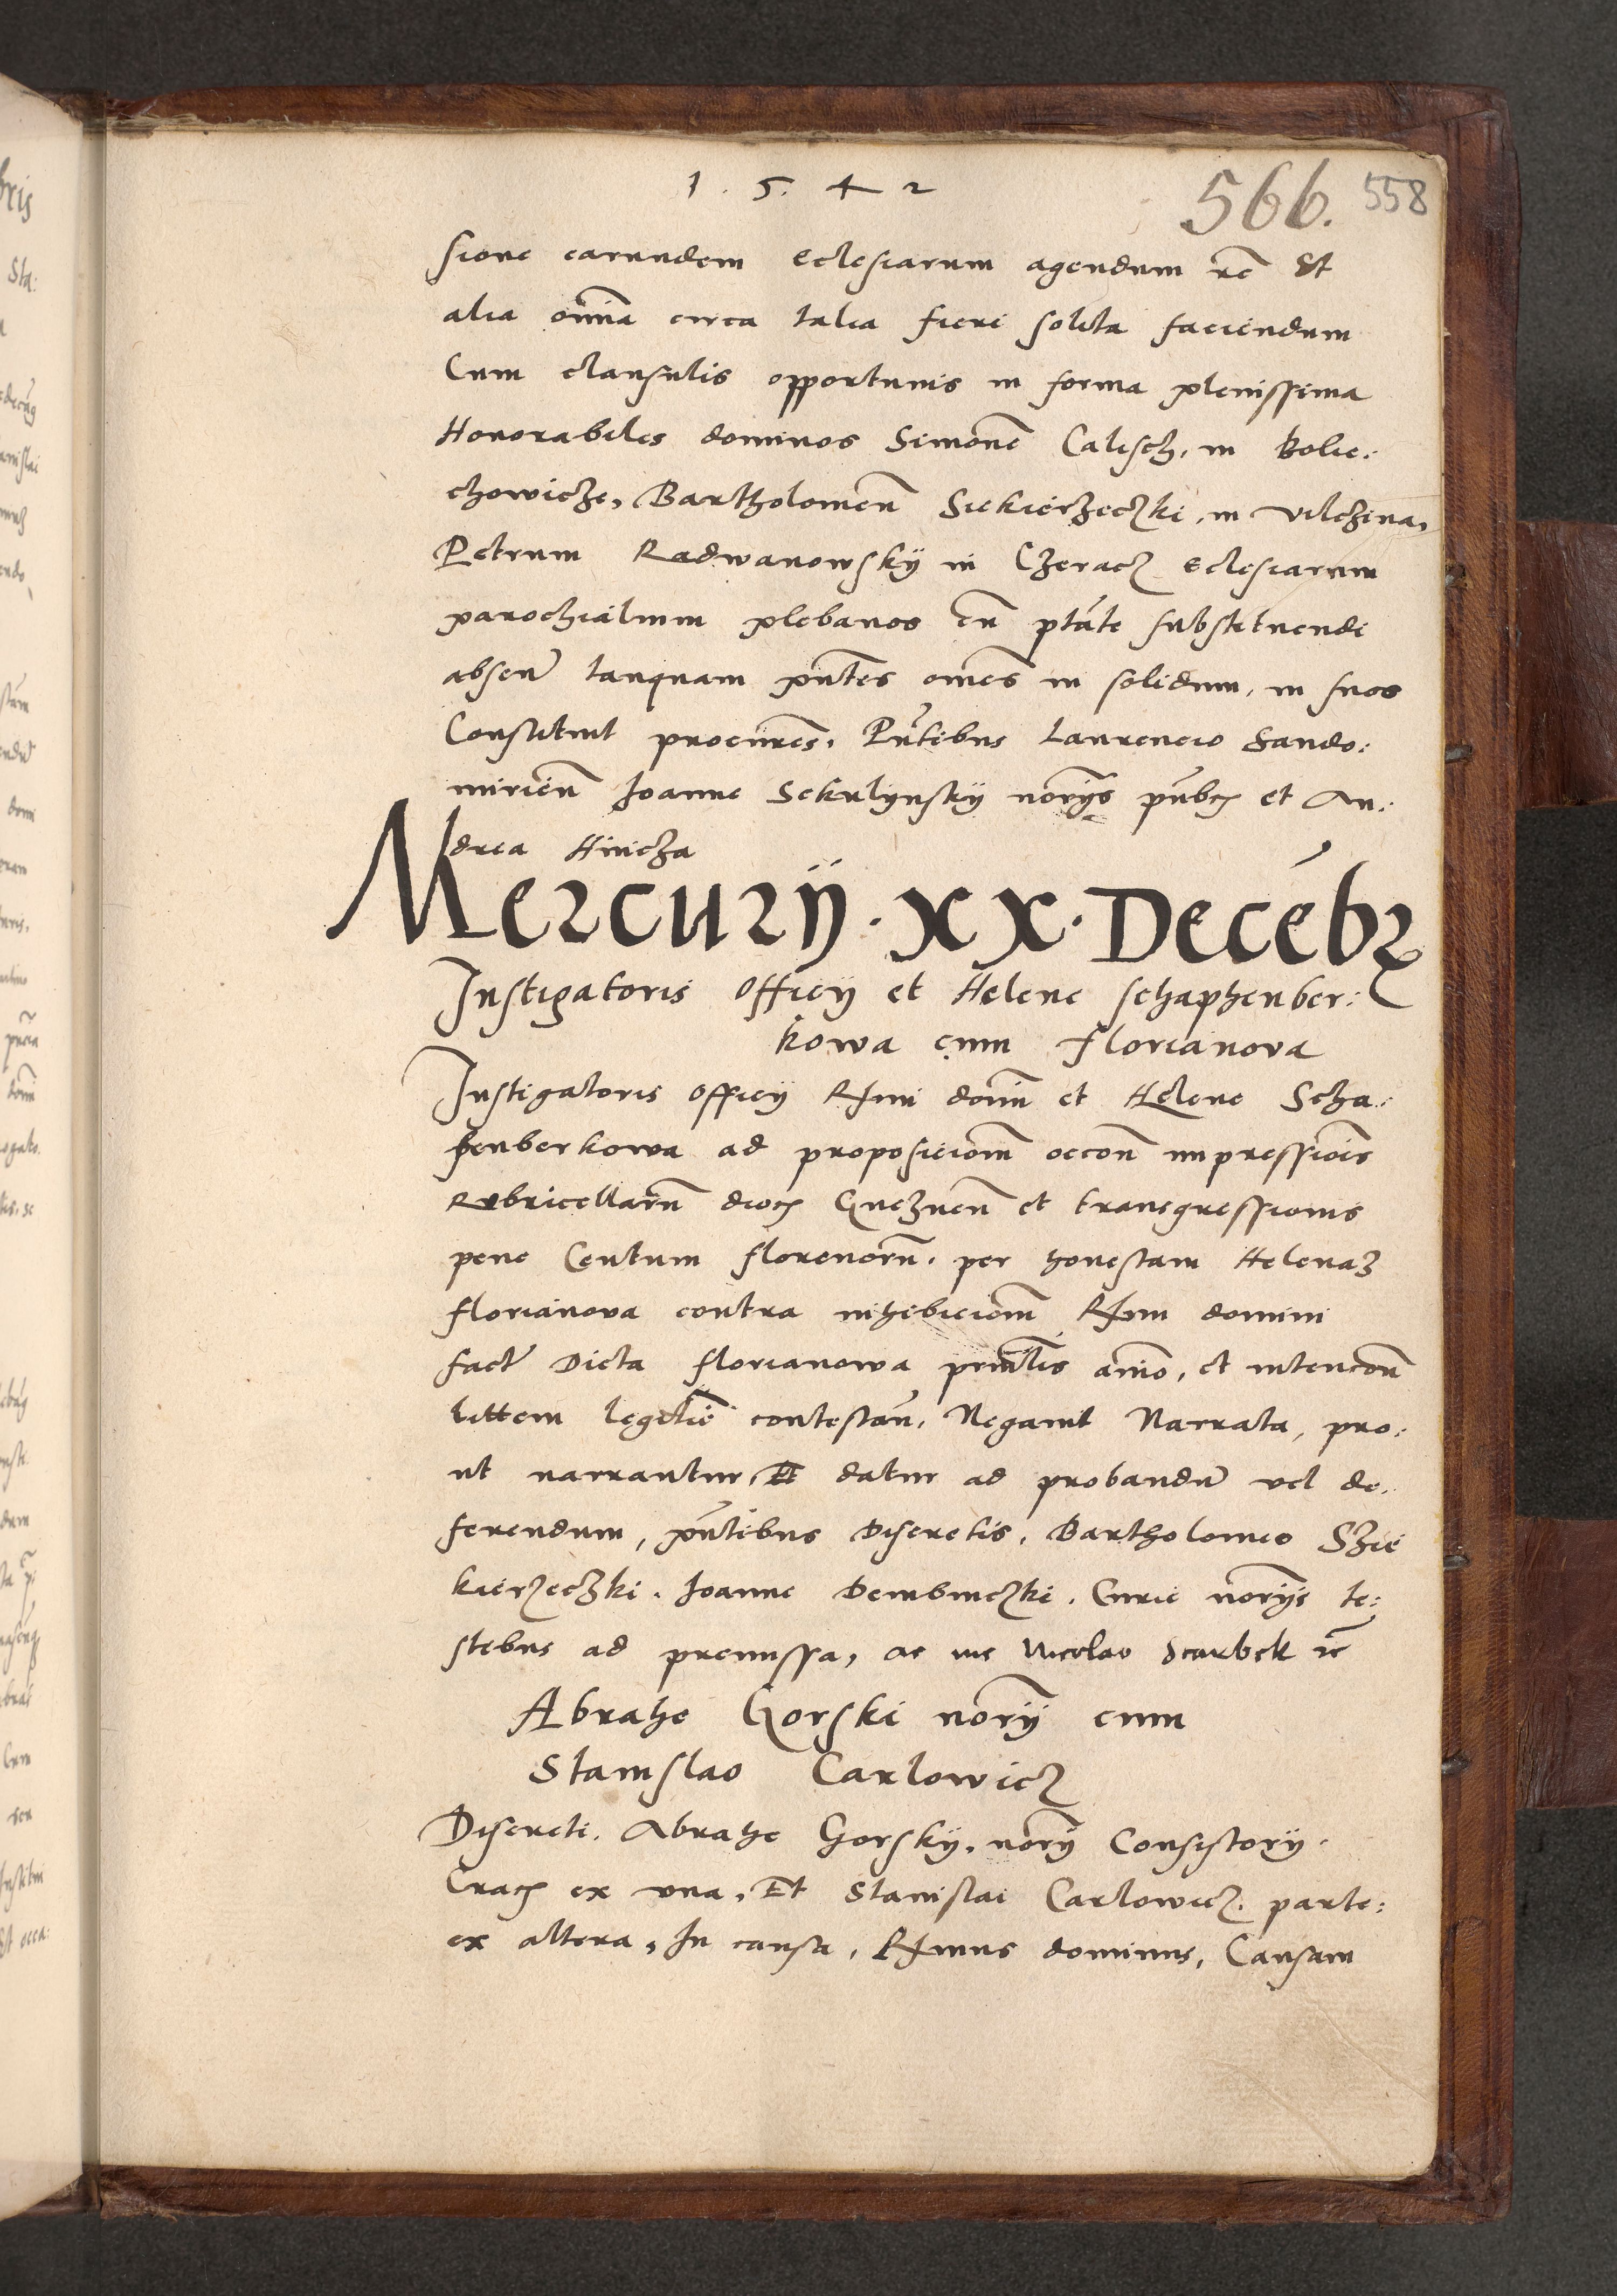 1 . 5 . 4 2
566. 558
sione earundem Eclesiarum agendum rē Et
alia om̄ia circa talia fieri solita faciendum
Cum clausulis opportunis in forma plenissima
Honorabiles dominos Simonē Calisch, in Bolie:
chowicze, Bartholomeū Siekierzeczki, in Vilczina,
Petrum Radwanowskÿ in Czeracz Eclesiarum
parochialium plebanos cū ptāte substituendi
absen̄ tanquam pn̄tes om̄es in solidum, in suos
Constituit procūres. Pn̄tibus Laurencio Sando:
mirien̄ Joanne Sekulynskÿ nor̄ijs pub̄cis et An:
drea Hincza
Mercurÿ · XX · Decēbr
Instigatoris Officÿ et Helene Schaphenber:
kowa cum Florianova
Instigatoris Officÿ R̄mi dom̄i et Helene Scha:
fenberkowa ad proposiciom̄ occōn impressiōis
Rubricellarū dioc̄ Gneznen̄ et transgressionis
pene Centum florenorū. per honestam Helenaz
Florianova contra inhibiciom̄ R̄mi domini
fact̄ Dicta Florianowa pn̄tialis ani̅o, et intencōn̄
littem legitīe contestan̄. Negauit Narrata, pro:
ut narrantur, Et datur ad proband̄ vel de:
ferendum, pn̄tibus Discretis. Bartholomeo Szie
kierzeczki. Joanne Dembinczki. Curie nor̄ijs te:
stibus ad premissa, ac me Nicolao Scarbek rē
Abrahe Gorski nor̄ij cum
Stanislao Carlowicz
Discreti. Abrahe Gorskÿ, nor̄ij Consistorÿ.
Crac̄ ex vna, Et Stanislai Carlowicz. parte:
ex altera, In causa, R̄mus dominus, Causam